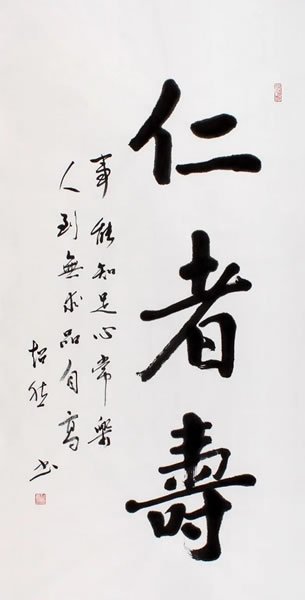 仁者壽
事能知足心常樂
人到無求品自高
書